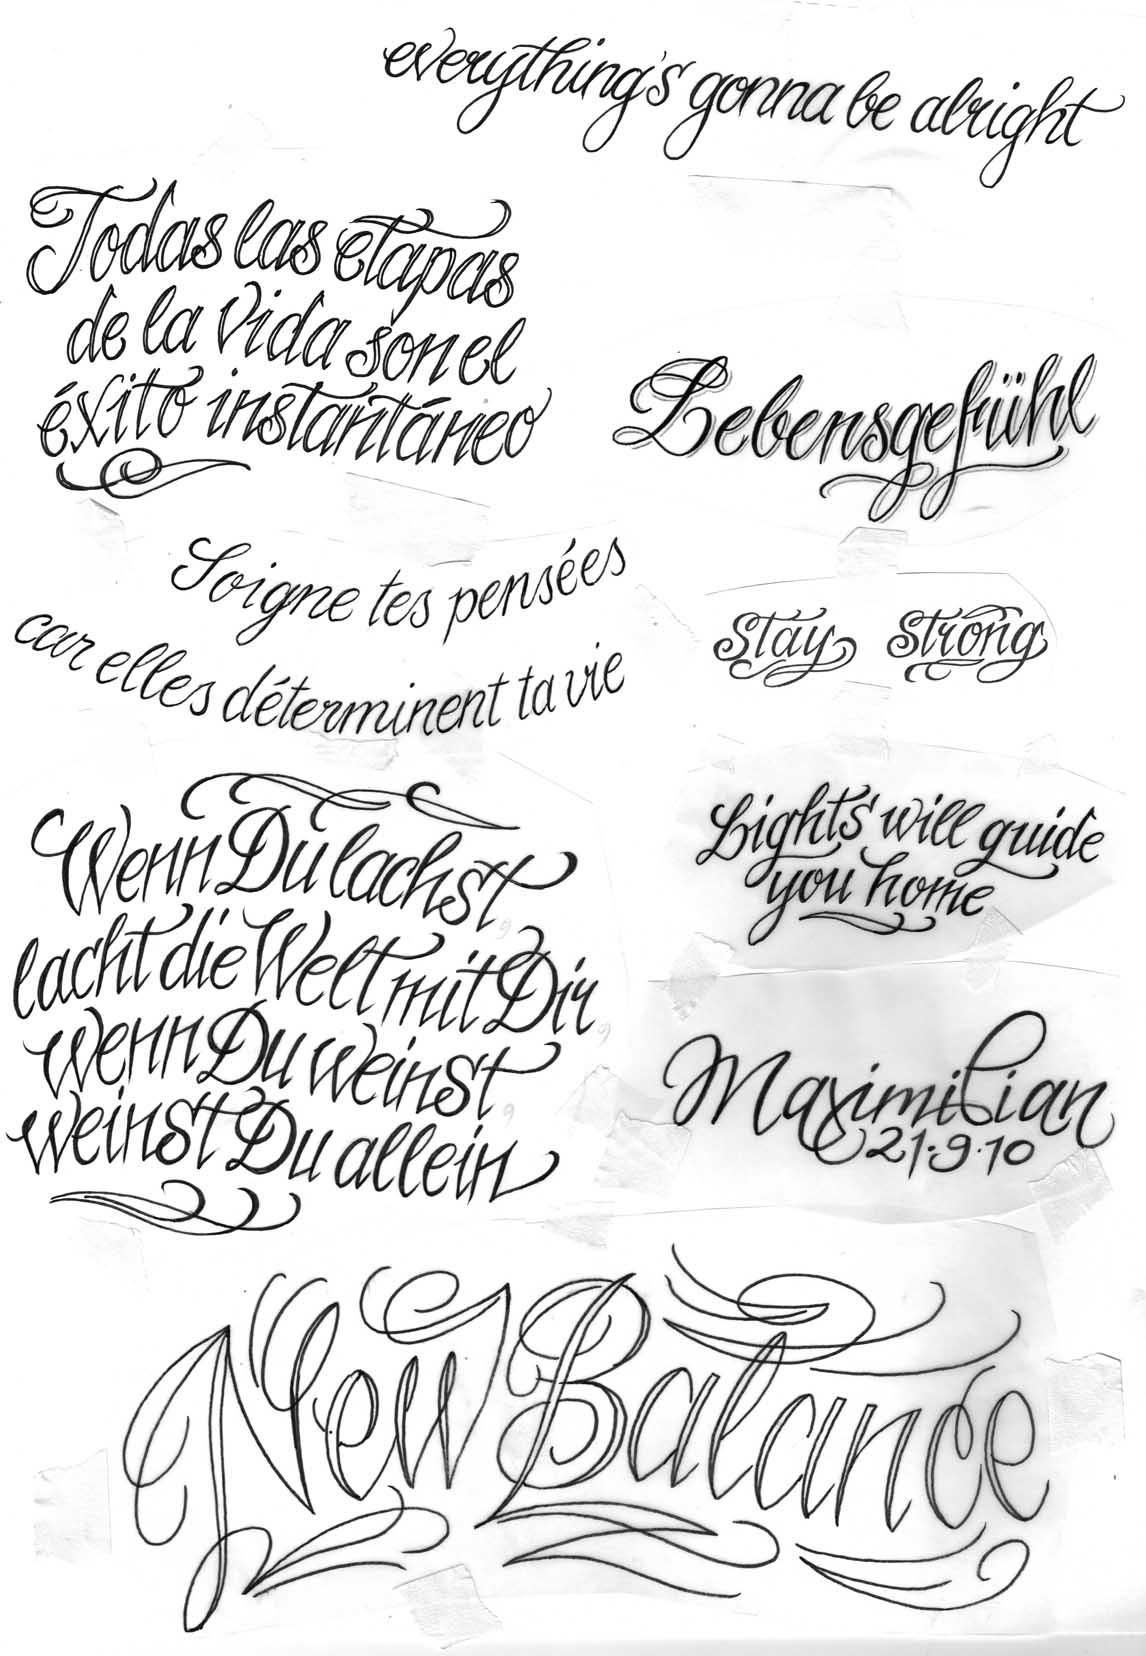 everything's gonna be alright
Todas las etapas
de la Vida son el
éxito instantáneo
Lebensgefühl
Soigne tes pensées
car elles déterminent ta vie
Stay Strong
Wenn Du lachst,
lacht die Welt mit Dir,
wenn Du weinst,
weinst Du allein
Lights will guide
you home
Maximilian
21.9.10
New Balance